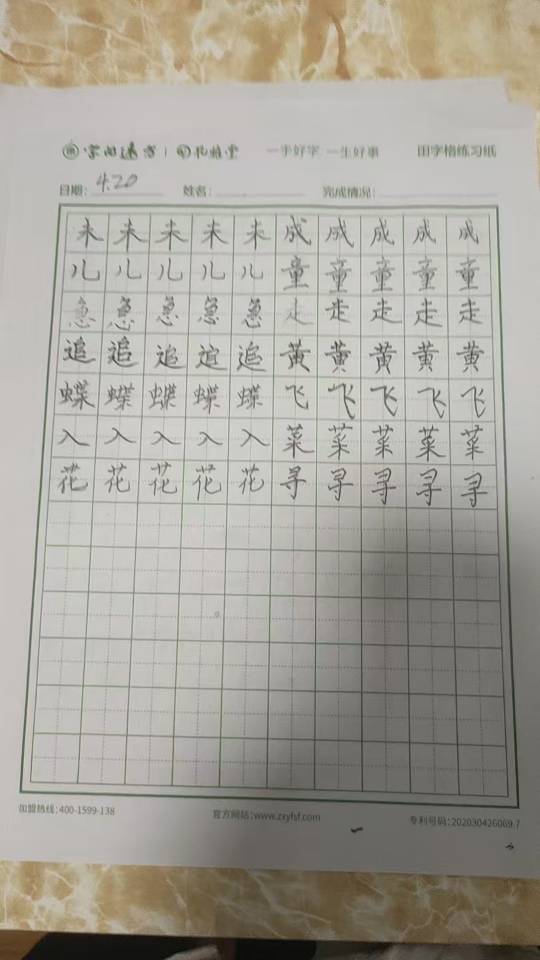 一手好字 一生好事 田字格练习纸
日期: 4.20 姓名: 完成情况:
未未未未未成成成成成
儿儿儿儿儿童童童童童
急急急急急走走走走走
追追追追追黄黄黄黄黄
蝶蝶蝶蝶蝶飞飞飞飞飞
入入入入入菜菜菜菜菜
花花花花花寻寻寻寻寻
加盟热线:400-1599-138 官方网站:www.zzyfsf.com 专利号码:202030426069.7